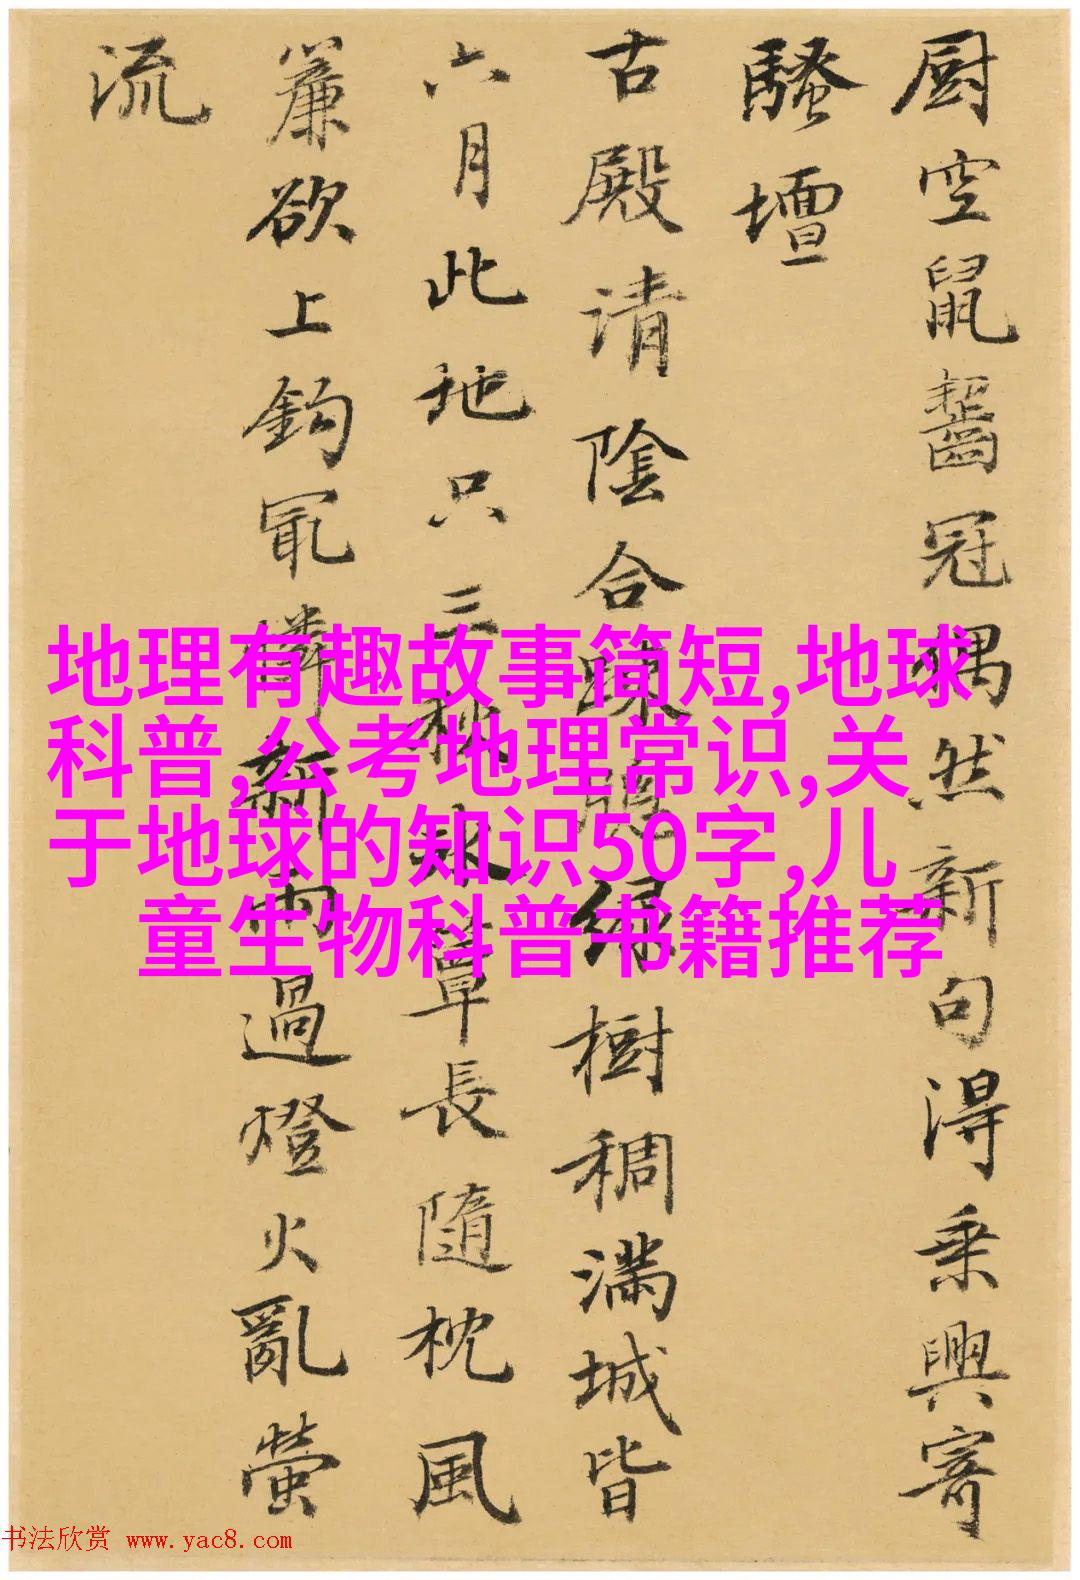 厨空鼠齧冠偶然新句得乗興寄
騷壇
古殿请陰合疎牕緑樹稠满城皆
六月此地只三秋水草長随枕風
簾欲上鈎冣憐新雨過燈火亂螢
流
地理有趣故事简短,地球
科普,公考地理常识,关
于地球的知识50字,儿
童生物科普书籍推荐
书法欣赏 www.yac8.com